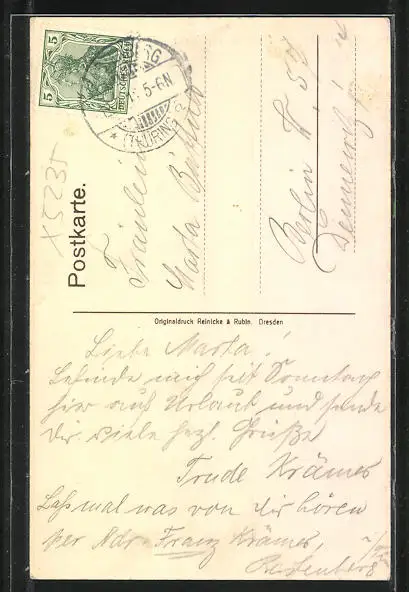 5 DEUTSCHES REICH 5
5-6N
* (THÜRING
X5235
Postkarte.
Fräulein
Marta
Berlin W. 57
Originaldruck Reinicke & Rubin. Dresden
Liebe Marta!
Befinde mich seit Sonntag
hier auf Urlaub und sende
Dir viele hzl. Grüße
Trude Krämer
Laß mal was von dir hören
per Adr. Franz Krämer,